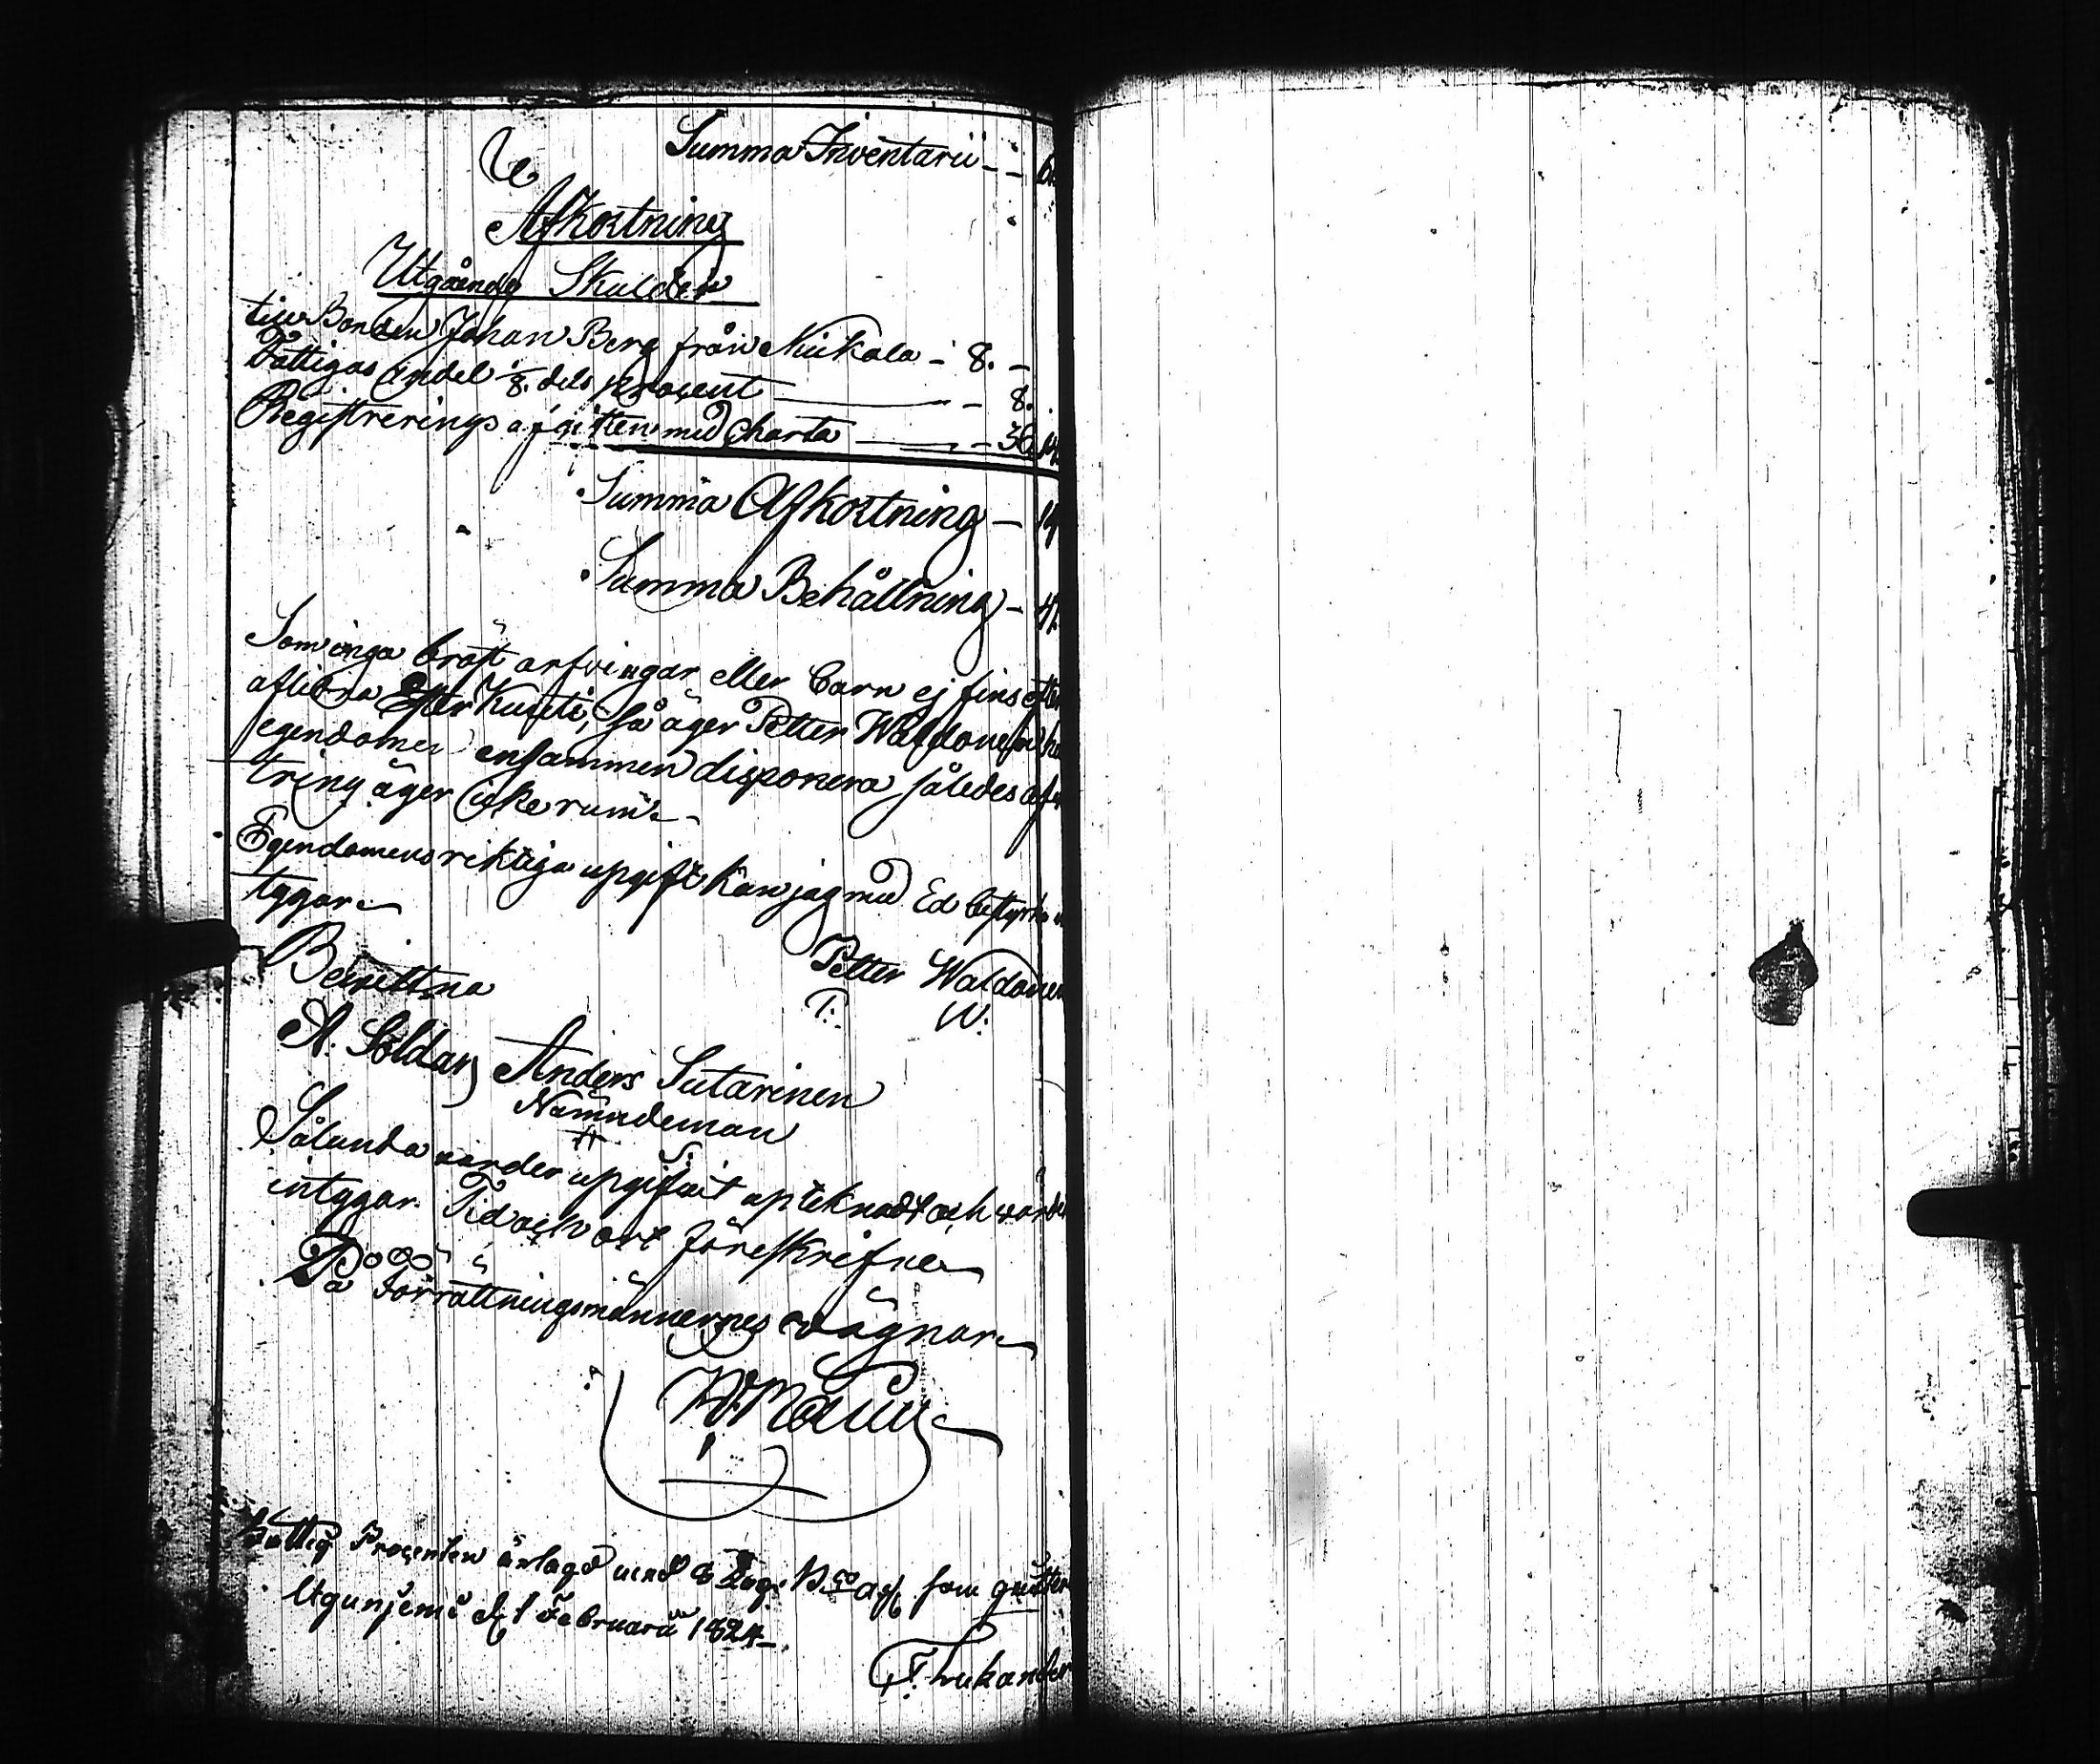 Summa Inventarii - - 6
Afkortning
Utgående Skulder
till Bonden Johan Berg från Nickola - 8. -
Fattigas andel 1/8. dels procent - 8.
Registrerings afgiften med Charta - 36
Summa Afkortning -
Summa Behållning -
Som inga bröst arfvingar eller barn ej fins efter
aflidna så äger Petter Waldonen
egendomen ensammen disponera således
tring äger icke rum.
Egendomens riktiga upgift kan jag med Ed bestyrka
tygar.
Petter Waldonen
Bewittna
P: W:
A. Soldan Anders Sutarinen
Nämndeman
Sålunda vorden upgifvit upteknadt och
intygar. Tid och ort föreskrifne
På Förrättningsmännernes vägnar
Fattig Procenten erlagd med 8
d. 1 Februarii 1824.